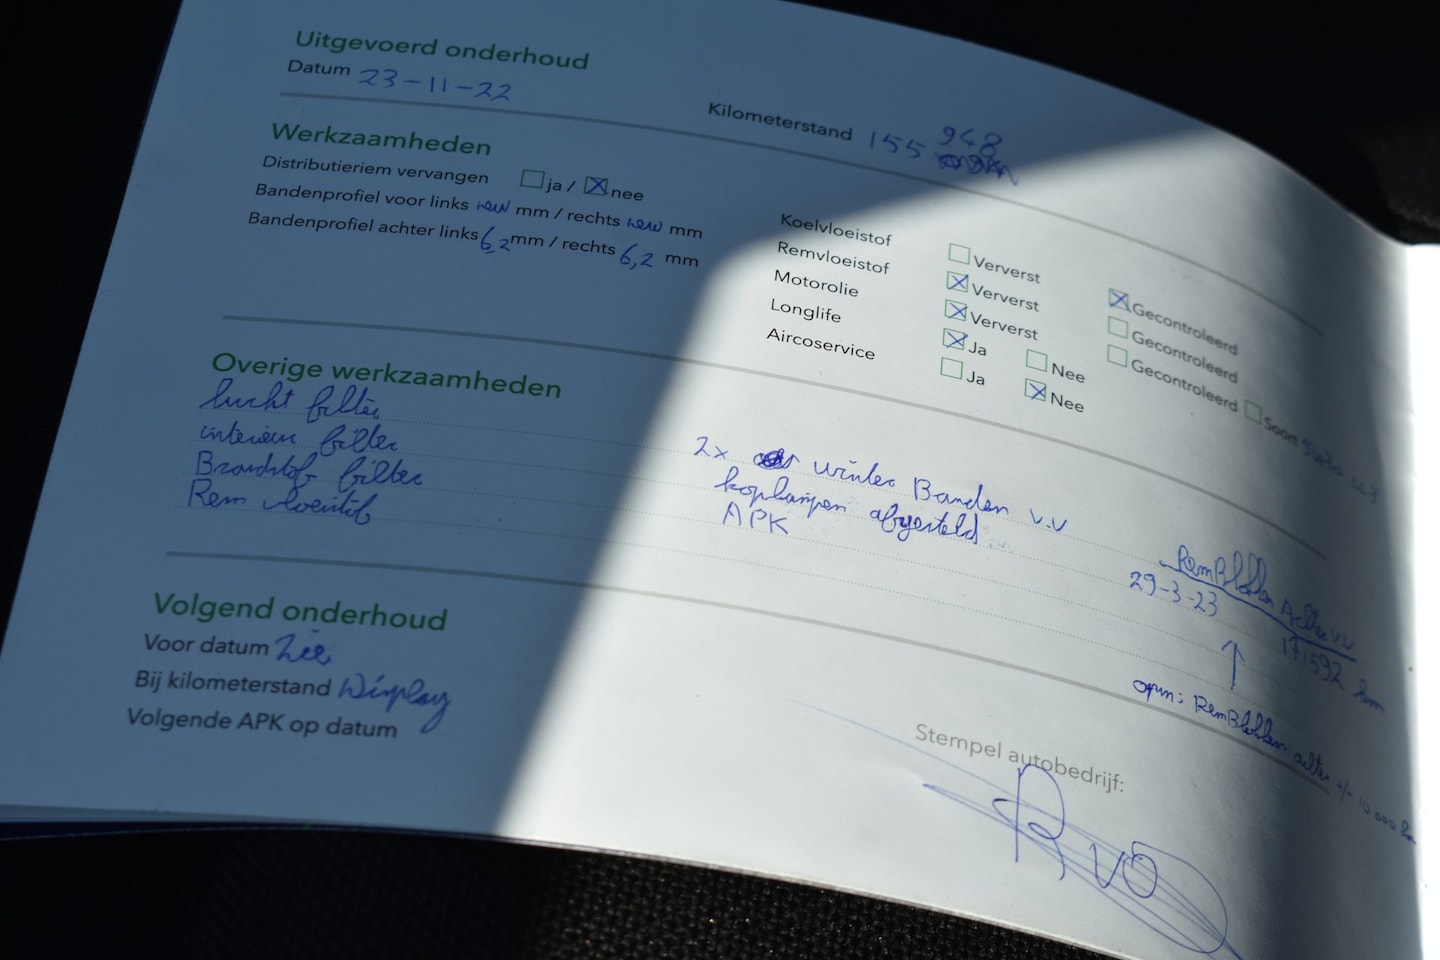 Uitgevoerd onderhoud
Datum 23-11-22
Kilometerstand 155 948
Werkzaamheden
Distributieriem vervangen ja / nee
Bandenprofiel voor links new mm / rechts new mm
Bandenprofiel achter links 6,2 mm / rechts 6,2 mm
Koelvloeistof Ververst Gecontroleerd
Remvloeistof Ververst Gecontroleerd
Motorolie Ververst Gecontroleerd Soort
Longlife Ja Nee
Aircoservice Ja Nee
Overige werkzaamheden
lucht filter
interieur filter
Brandstof filter
Rem vloeistof
2x winter Banden v.v
koplampen afgesteld
APK
RemBlokken Achter v.v
29-3-23 171592 km
opm: RemBlokken achter +/- 10 000 km
Volgend onderhoud
Voor datum Zie
Bij kilometerstand Display
Volgende APK op datum
Stempel autobedrijf:
RVO